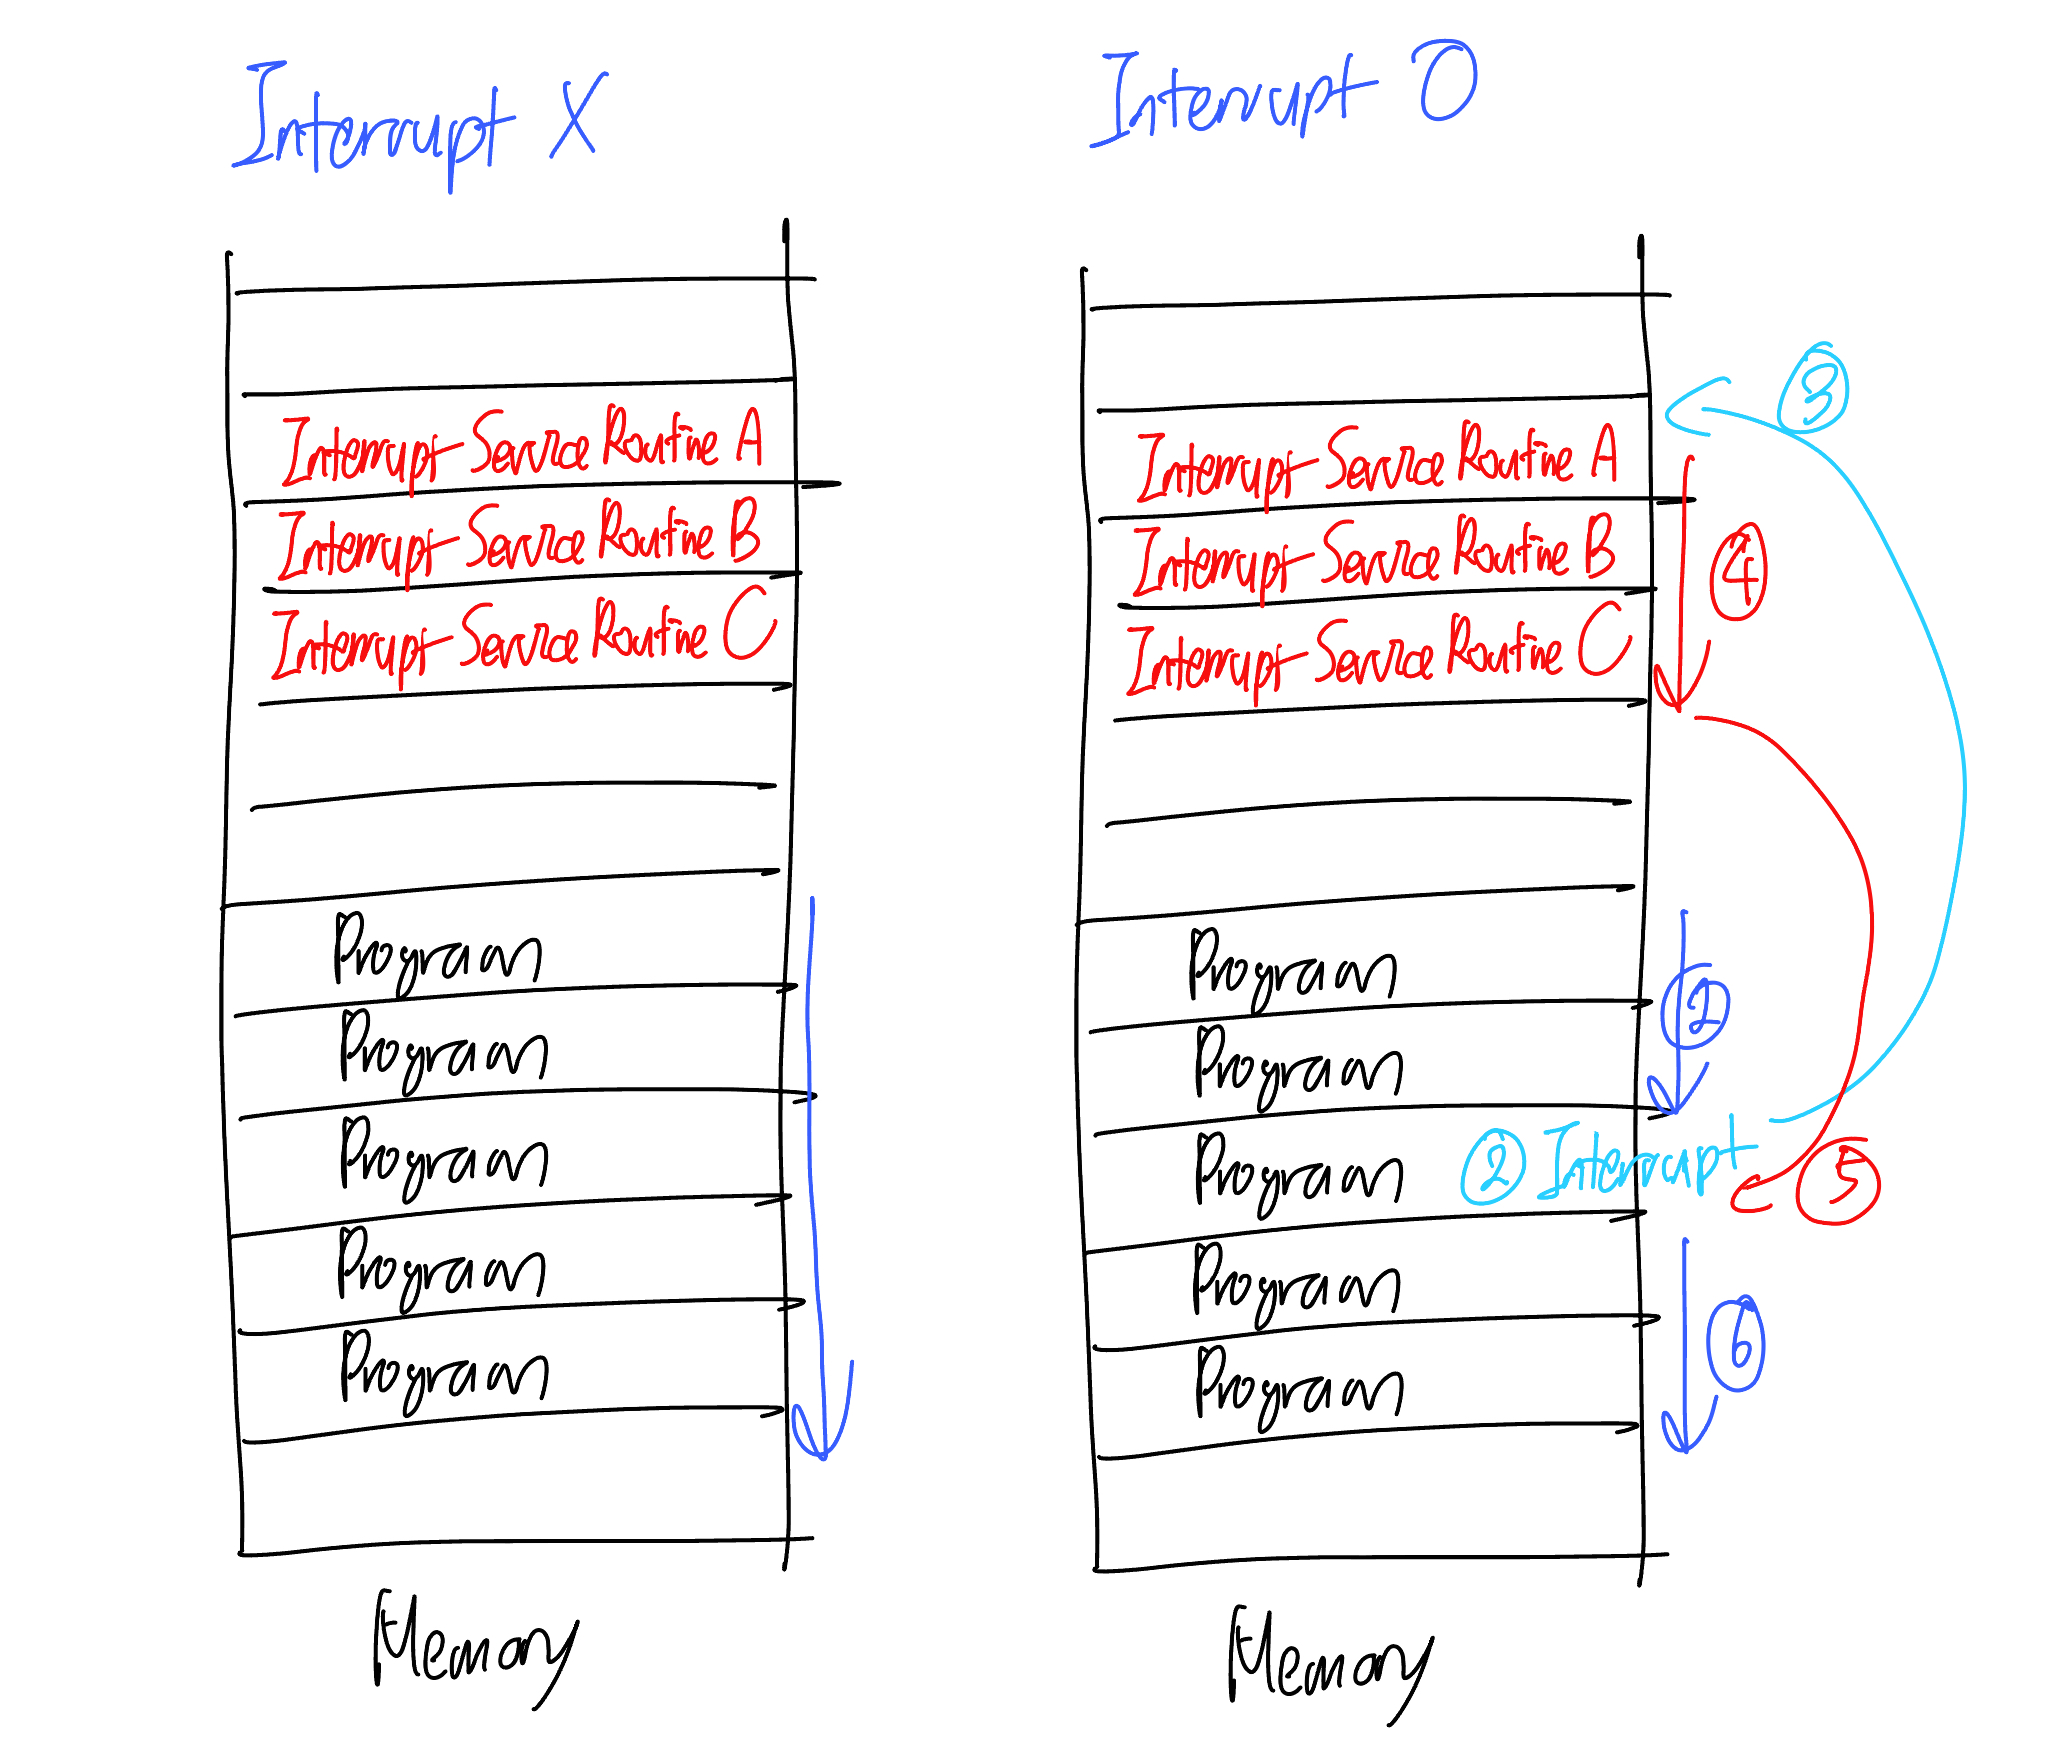 Interrupt X
Interrupt-Service Routine A
Interrupt-Service Routine B
Interrupt-Service Routine C
Program
Program
Program
Program
Program
Memory
Interrupt O
③
Interrupt-Service Routine A
④
Interrupt-Service Routine B
Interrupt-Service Routine C
Program
②
Program
Program ② Interrupt ⑤
Program
⑥
Program
Memory